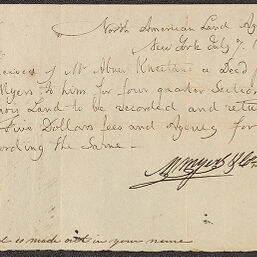 North American Land Ag
New York July 7. 1
of Mr Abner a Deed
Myers to him for four quarter Section
Land to be recorded and retu
Five Dollars fees and Agency for
ording the Same —
Myers & Co
d is made out in your name